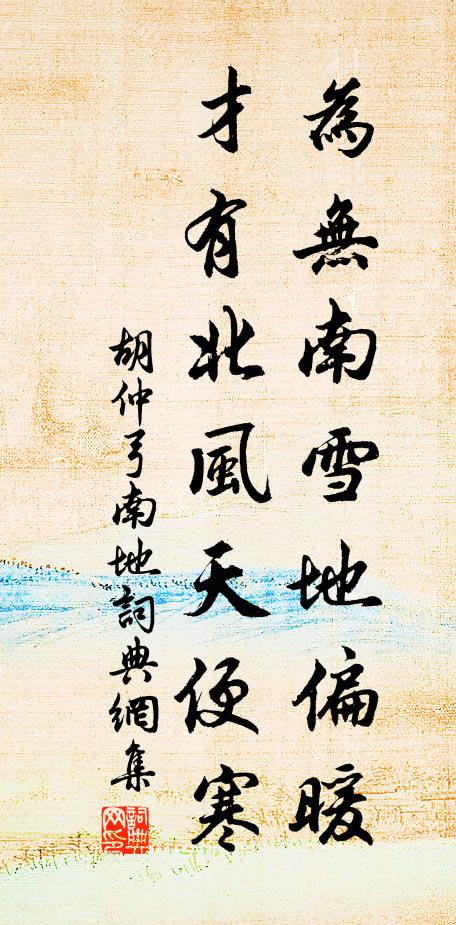 為無南雪地偏暖
才有北風天便寒
胡仲弓南地詞典網集
詞典网印